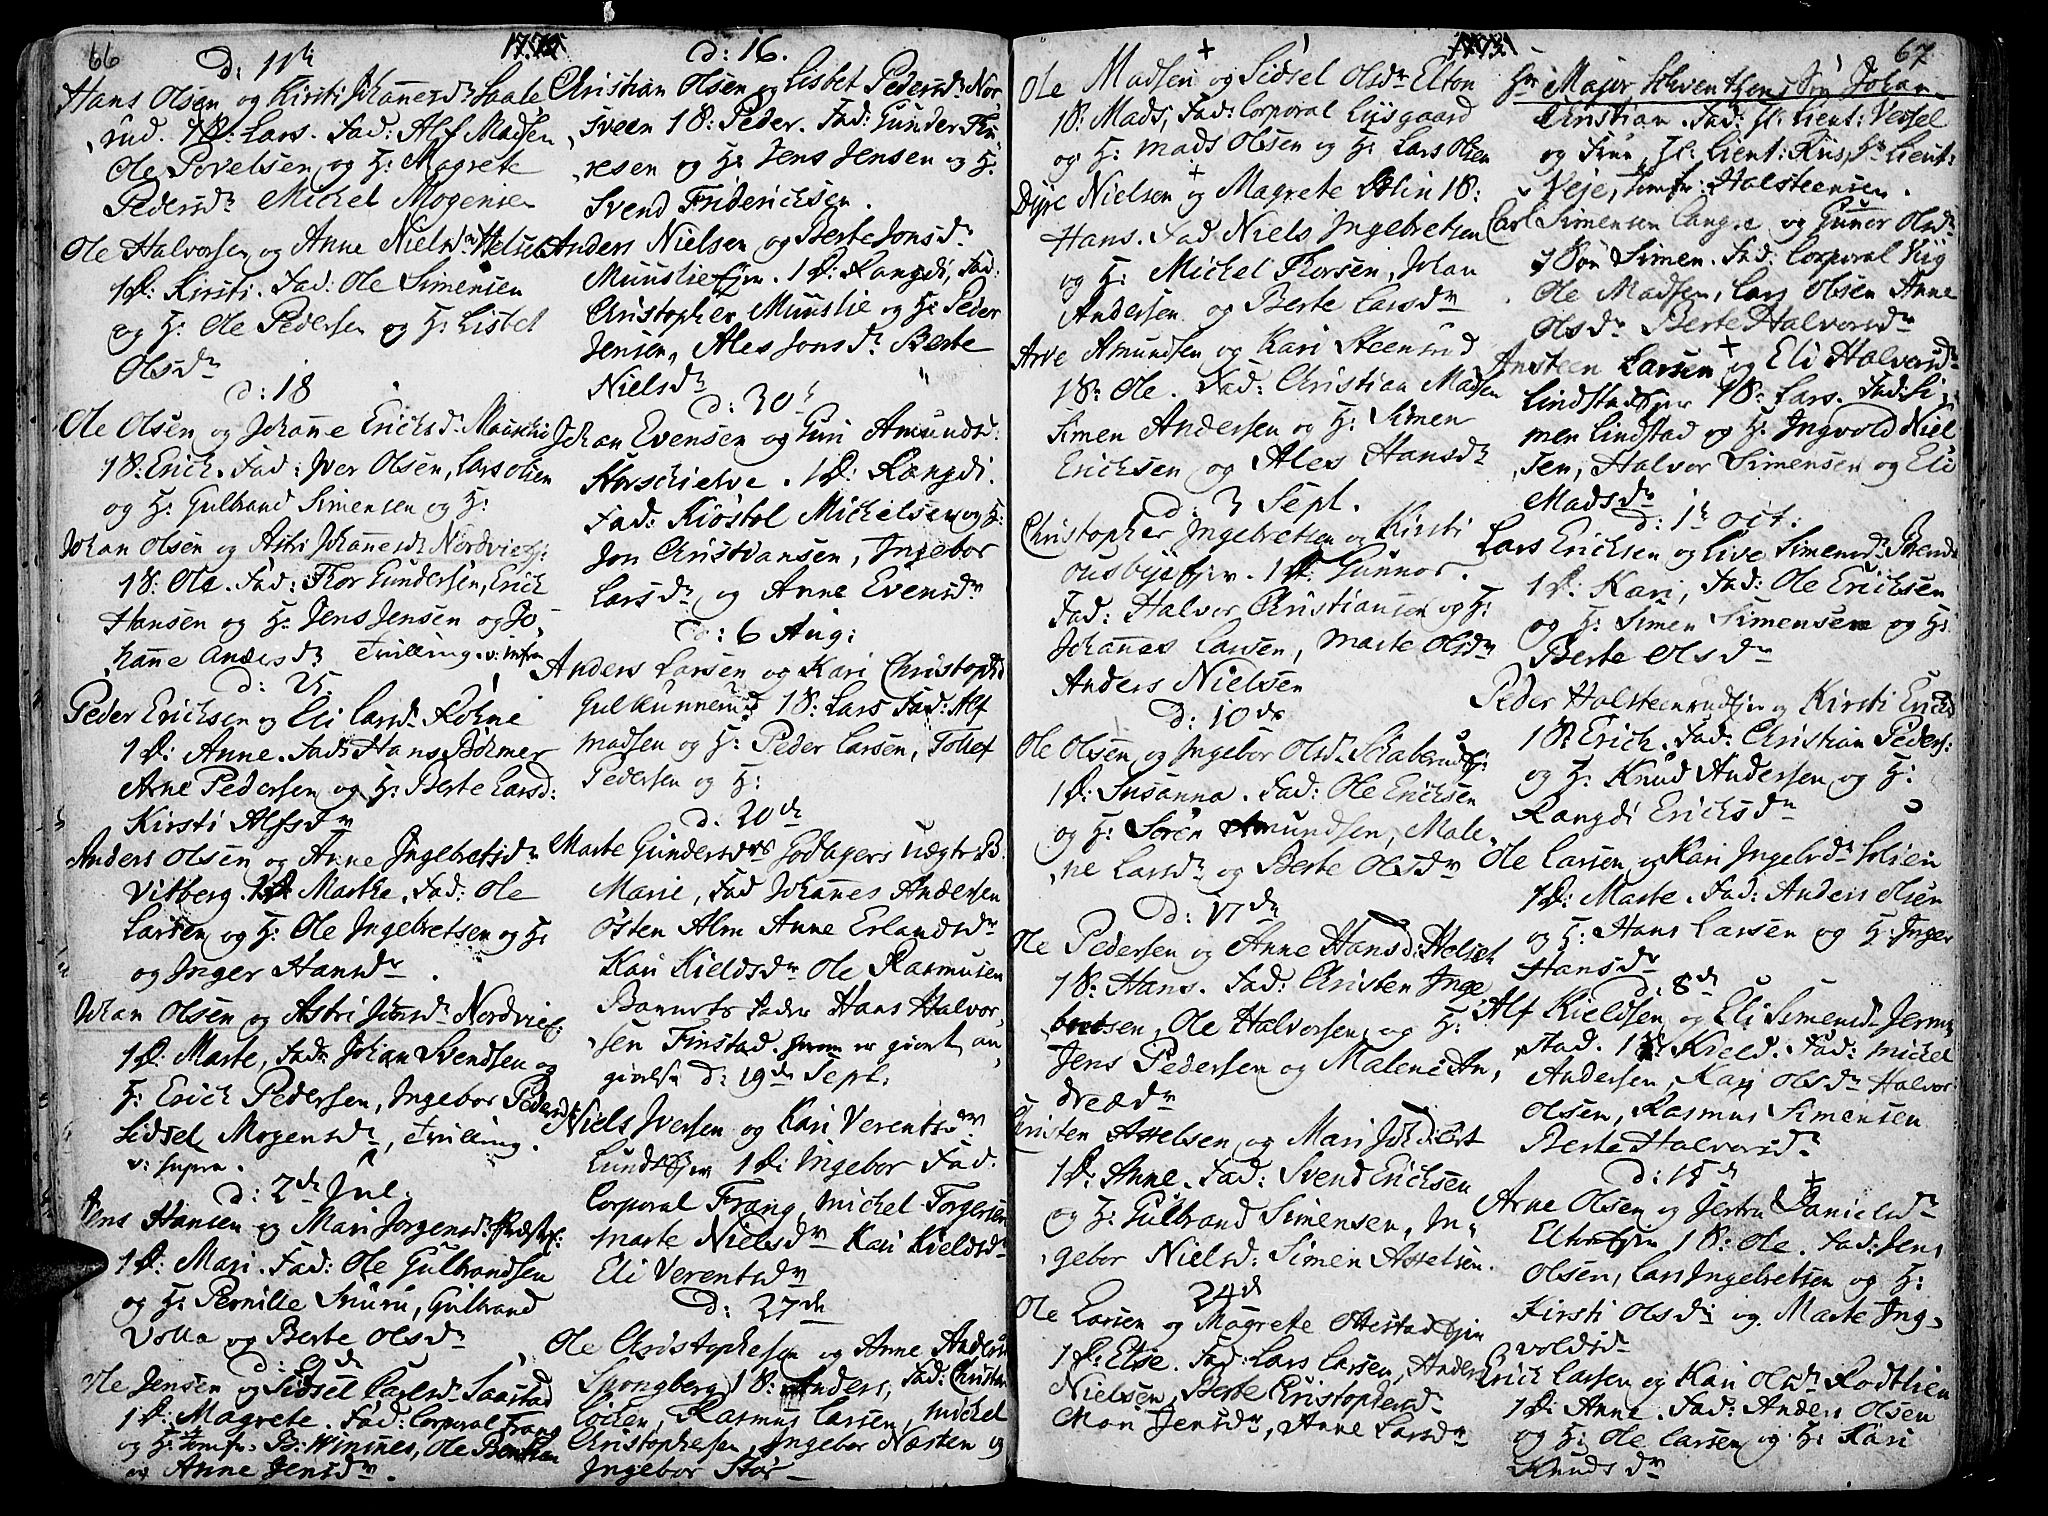 66
d: 11te
Hans Olsen og Kirsti Johannesdr Saale
rud. 1 D: Lars. Fad: Alf Madsen
Ole Povelsen og H: Magrete
Pedersdr Michel Mogensen
Ole Halvorsen og Anne Nielsdr Helset
1 D: Kirsti. Fad: Ole Simensen
og H: Ole Pedersen og H: Lisbet
Olsdr
d: 18
Ole Olsen og Johanne Erichsdr
1 S: Erich. Fad: Iver Olsen, Lars Olsen
og H: Gulbrand Simensen og H:
Johan Olsen og Astri Johannesdr Nordviej:
1 S: Ole. Fad: Thor Gundersen, Erich
Hansen og H: Jens Jensen og Jo,
hanne Andersdr Tvilling. v: infra
d: 25.
Peder Erichsen og Eli Larsdr Røhne
1 D: Anne. Fad: Hans Bøhmer
Arne Pedersen og H: Berte Larsd:
Kirsti Alfsdr
Anders Olsen og Anne Ingebretsdr
Vitberg. 1 D Marthe. Fad: Ole
Larsen og H: Ole Ingebretsen og H:
og Inger Hansdr.
Johan Olsen og Astri Johansdr Nordviej:
1 D: Marte, Fad: Johan Svendsen og
H: Erich Pedersen, Ingebor Pedersdr
Sidsel Mogensdr, Tvilling.
v: supra.
d: 2den Jul.
Jens Hansen og Mari Jorgensdr Præstej:
1 D: Mari. Fad: Ole Gulbrandsen
og H: Pernille Snuru, Gulbrand
Volla og Berte Olsdr
d: 9de
Ole Jensen og Sidsel Carlsdr Saastad
1 D: Magrete. Fad: Corporal Frang
og H: Jomfr. B: Winsnes, Ole Bentsen
og Anne Jensdr.
d: 16.
Christian Olsen og Lisbet Pedersdr Nor,
sveen 1 S: Peder. Fad: Gunder Thu
resen og H: Jens Jensen og H:
Svend Friderichsen.
Anders Nielsen og Berte Jonsdr
Muuslie Ejer. 1 D: Rangdi, Fad:
Christopher Muuslie og H: Peder
Jensen, Ales Jonsdr Berte
Nielsdr
d: 30te
Johan Evensen og Guri Amundsd:
Horschielve. 1 D: Rangdi.
Fad: Kiøstol Michelsen og H:
Jon Christiansen, Ingebor
Larsdr og Anne Evensdr
d: 6 Aug:
Anders Larsen og Kari Christophd
Gulkunnerud 1 S: Lars Fad: Alf
Madsen og H: Peder Larsen, Tollef
Pedersen og H:
d: 20de
Marte Gundersdrs Godagers uægte B.
Marie, Fad Johannes Andersen
Østen Alm Anne Erlandsdr
Kari Kieldsdr Ole Rasmusen
Barnets Fader Hans Halvor,
sen Finstad. er giort an,
givelse d: 19de Sept.
Niels Iversen og Kari Verentsdr
Lunds Ejer 1 D: Ingebor Fad.
Corporal Frang, Michel Torgersen
Marte Nielsdr Kari Kieldsdr
Eli Verentsdr
d: 27de
Ole Christophersen og Anne Andersd
Spongberg 1 S: Anders, Fad: Christen
Løiten, Rasmus Larsen, Michel
Christophersen, Ingebor Næsten og
Ingebor Stor-
67
Ole Madsen og Sidsel Olsdr Elton
1 S: Mads, Fad: Corporal Lysgaard
og H: Mads Olsen og H: Lars Olsen
Dyre Nielsen og Magrete Solin 1 S:
Hans. Fad Niels Ingebretsen
og H: Michel Thorsen, Johan
Andersen og Berte Larsdr
Arve Amundsen og Kari Steensrud
1 S: Ole. Fad: Christian Madsen
Simen Andersen og H: Simen
Erichsen og Ales Hansdr
d: 3 Sept.
Christopher Ingebretsen og Kirsti
Ousbye Ejer. 1 D: Gunnor.
Fad: Halvor Christiansen og H:
Johannes Larsen, Marte Olsdr
Anders Nielsen
d: 10de
Ole Olsen og Ingebor Olsdr Skaberud Ej:
1 D: Susanna. Fad: Ole Erichsen
og H: Søren Amundsen, Male,
ne Larsdr og Berte Olsdr
d: 17de
Ole Pedersen og Anne Hansd: Helset
1 S: Hans. Fad: Christen Inge
bretsen, Ole Halvorsen og H:
Jens Pedersen og Malene An,
dreædr
Christen Asselsen og Mari
1 D: Anne. Fad: Svend Erichsen
og H: Gulbrand Simensen, In,
gebor Nielsd: Simen Asselsen.
24de
Ole Larsen og Magrete Ottestad Ejer
1 D: Else. Fad: Lars Larsen, Anders
Nielsen, Berte Christophersdr
Mari Jensdr, Anne Larsdr
Hr Major Schventzens Søn Johan
Christian. Fad: Hr Lieut: Vessel
og Frue, Hr Lieut: Riis, Hr Lieut:
Veje, Jomfr: Halsteensen.
Carl Simensen Langre og Gunor Olsdr
1 Søn Simen. Fad: Corporal Viig
Ole Madsen, Lars Olsen Anne
Olsdr Berte Halvorsdr
Ansteen Larsen og Eli Halversdr
Lindstad Ejer 1 S: Lars. Fad: Si,
men Lindstad og H: Ingvold Niel
sen, Halvor Simensen og Eli
Madsdr
d: 1te Oct:
Lars Erichsen og Live Simensdr
1 D: Kari, Fad: Ole Erichsen
og H: Simen Simensen og H:
Berte Olsdr
Peder Halsteensrud Ejer og Kirsti Ericsd
1 S: Erich. Fad: Christian Peders:
og H: Knud Andersen og H:
Rangdi Erichsdr
Ole Larsen og Kari Ingebrdr Solien
1 D: Marte. Fad: Anders Olsen
og H: Hans Larsen og H: Inger
Hansdr
d: 8de
Alf Kieldsen og Eli Simensdr Jerm,
stad. 1 S: Kield. Fad: Michel
Andersen, Kari Olsdr Halvor
Olsen, Rasmus Simensen
Berte Halvorsdr
d: 15de
Arne Olsen og Jertru Danielsdr
Elton Ejer 1 S: Ole. Fad: Jens
Olsen, Lars Ingebretsen og H:
Kirsti Olsdr og Marte Ing,
voldsdr
Erich Larsen og Kari Olsdr Rodtlien
1 D: Anne. Fad: Anders Olsen
og H: Ole Larsen og H: Kari
Knudsdr